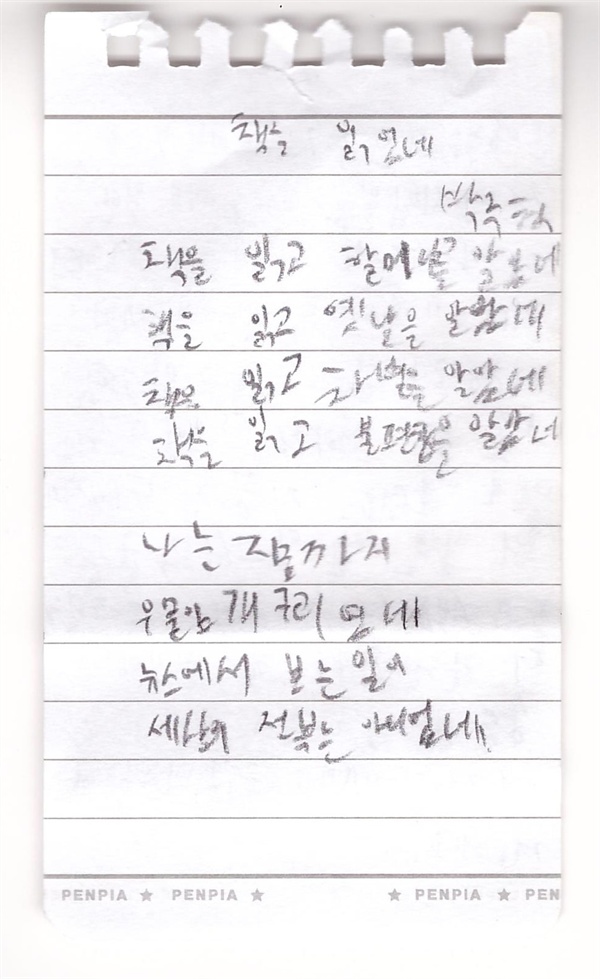 책을 읽었네
책을 읽고
책을 읽고 옛날을 알았네
책을 읽고 알았네
책을 읽고 불편함을
나는 지금까지
우물안 개구리 였네
뉴스에서 보는 일이
세상의 전부는 아니었네
PENPIA ★ PENPIA ★ ★ PENPIA ★ PEN